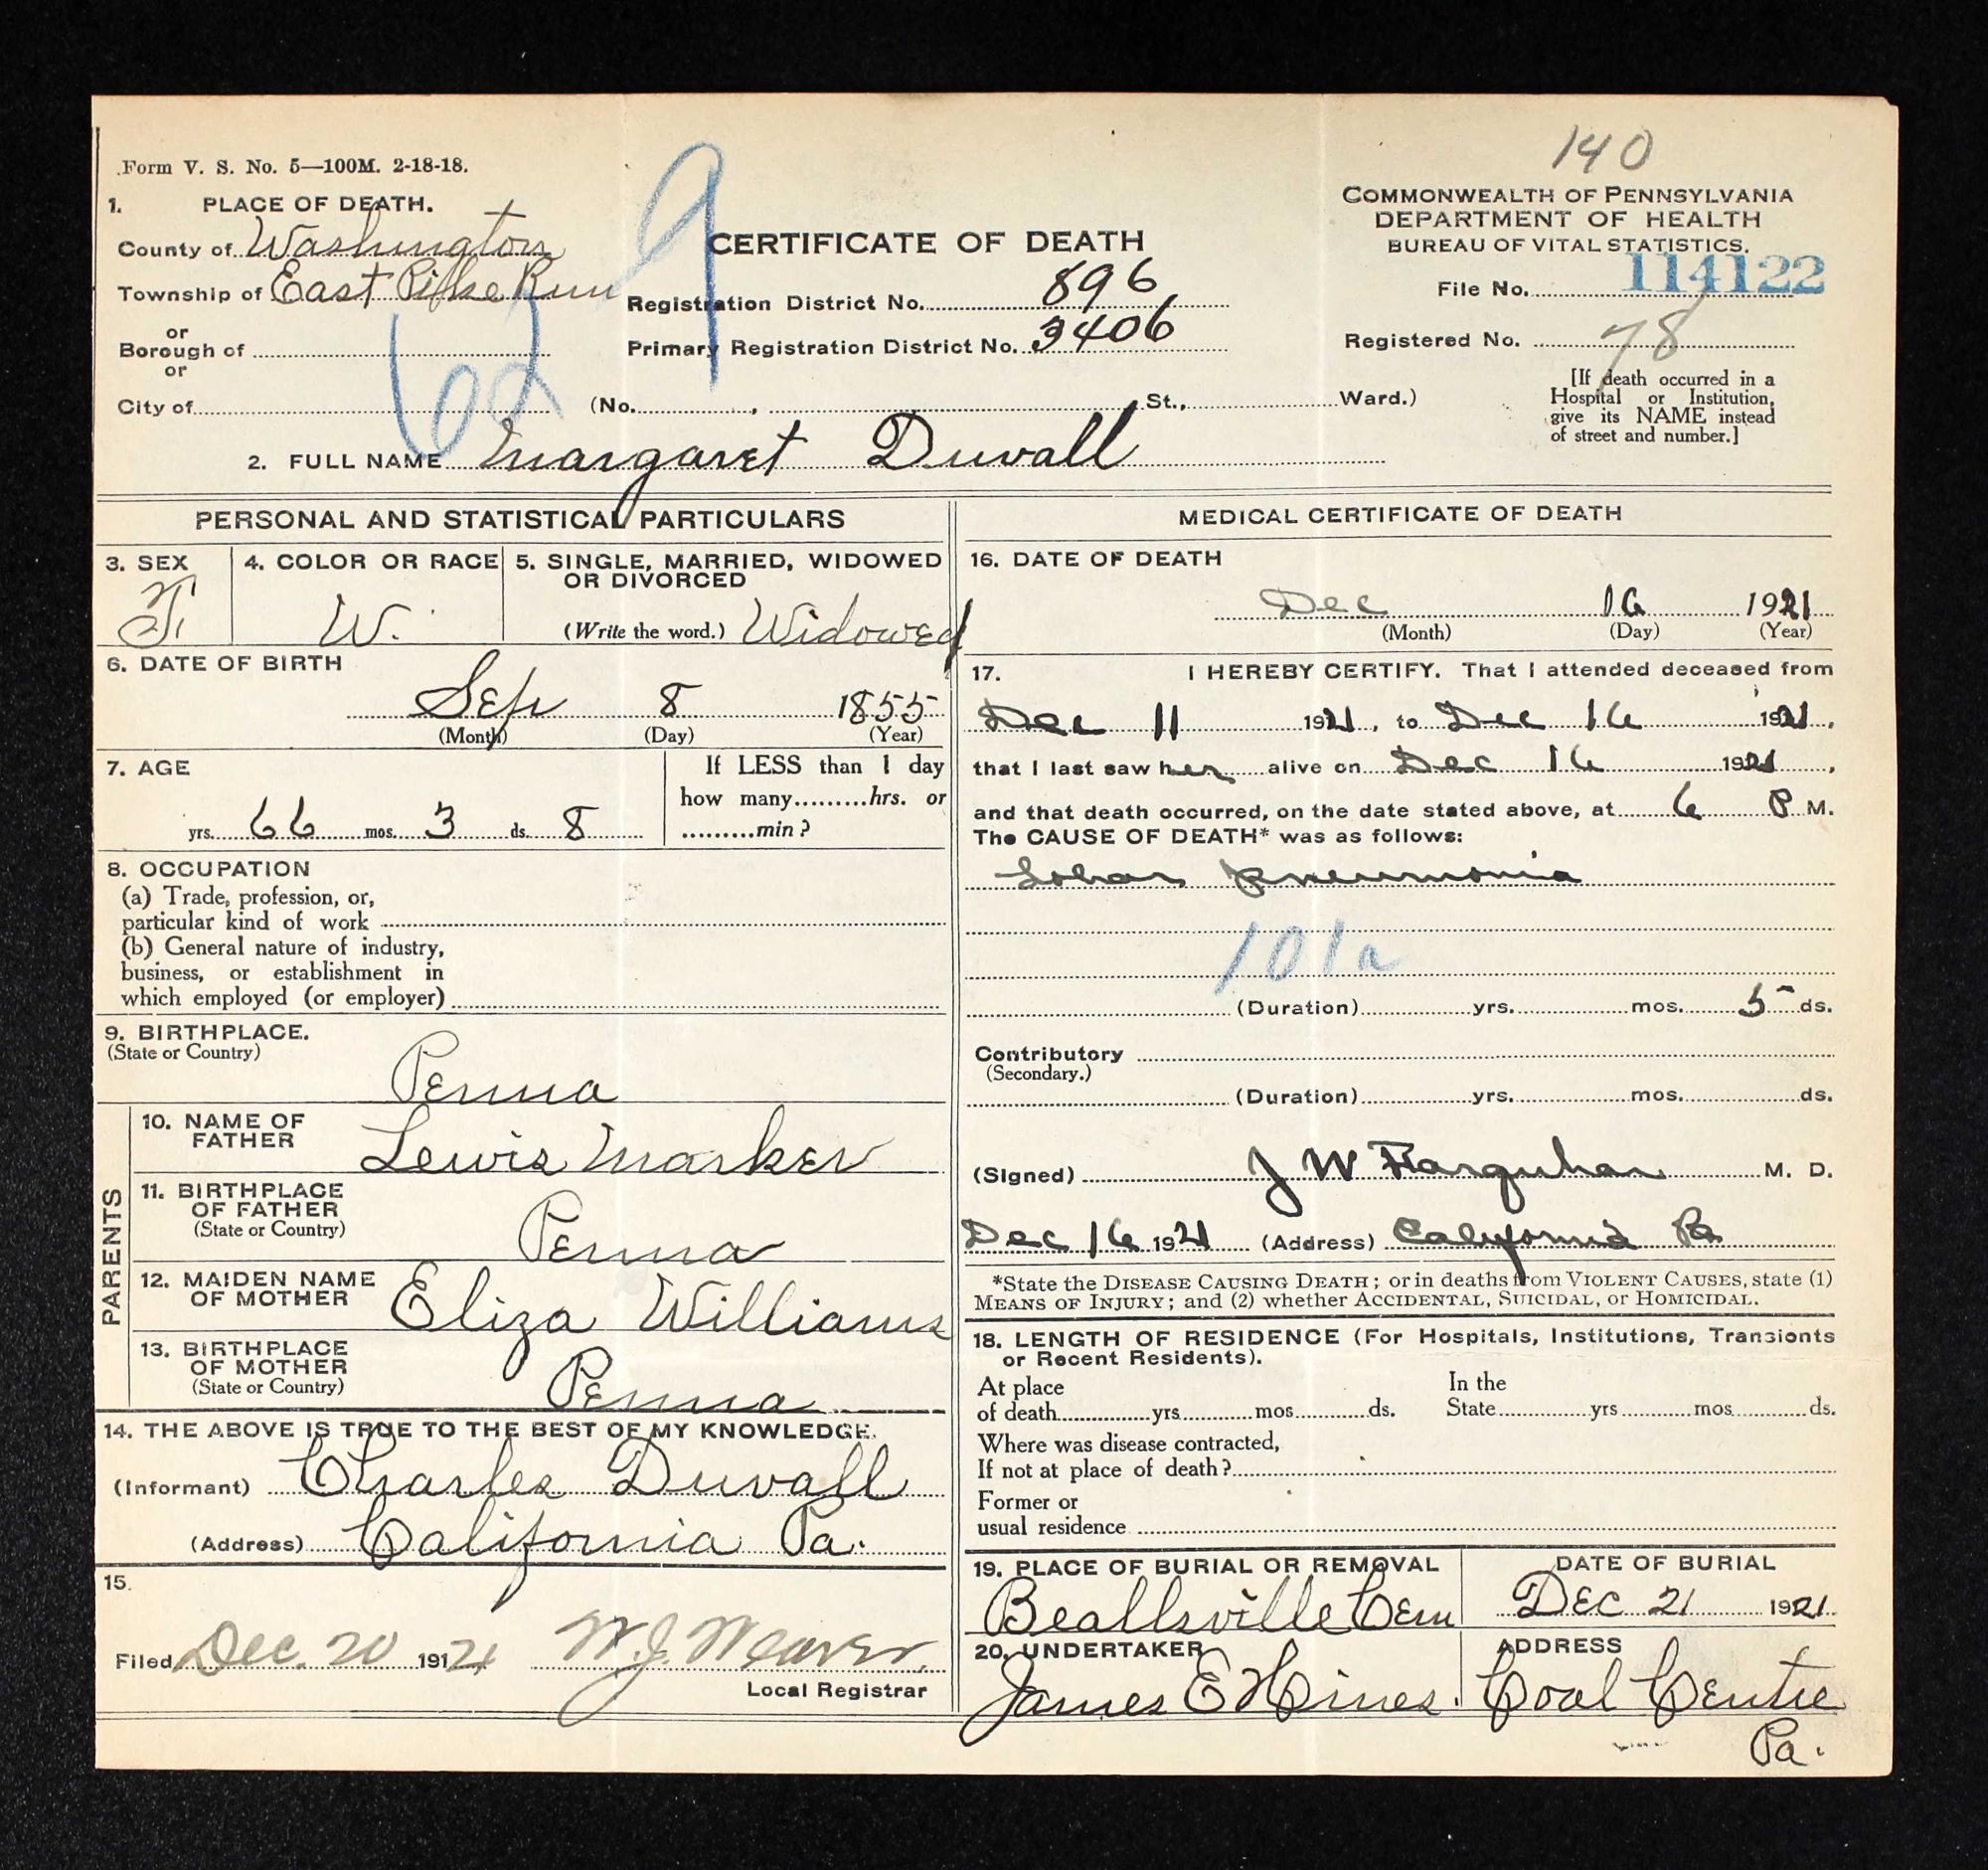 140
Form V. S. No. 5—100M. 2-18-18.
COMMONWEALTH OF PENNSYLVANIA
DEPARTMENT OF HEALTH
BUREAU OF VITAL STATISTICS.
1. PLACE OF DEATH.
County of Washington
Township of East Pike Run
or
Borough of
or
City of
9
62
CERTIFICATE OF DEATH
Registration District No. 896
Primary Registration District No. 3406
(No. , St., Ward.)
File No. 114122
Registered No. 78
[If death occurred in a
Hospital or Institution,
give its NAME instead
of street and number.]
2. FULL NAME Margaret Duvall
PERSONAL AND STATISTICAL PARTICULARS
3. SEX
F.
4. COLOR OR RACE
W.
5. SINGLE, MARRIED, WIDOWED
OR DIVORCED
(Write the word.) Widowed
6. DATE OF BIRTH
Sep 8 1855
(Month) (Day) (Year)
7. AGE
yrs. 66 mos. 3 ds. 8
If LESS than 1 day
how many hrs. or
min?
8. OCCUPATION
(a) Trade, profession, or,
particular kind of work
(b) General nature of industry,
business, or establishment in
which employed (or employer)
9. BIRTHPLACE.
(State or Country)
Penna
PARENTS
10. NAME OF
FATHER
Lewis Marker
11. BIRTHPLACE
OF FATHER
(State or Country)
Penna
12. MAIDEN NAME
OF MOTHER
Eliza Williams
13. BIRTHPLACE
OF MOTHER
(State or Country)
Penna
14. THE ABOVE IS TRUE TO THE BEST OF MY KNOWLEDGE.
(Informant) Charles Duvall
(Address) California Pa.
15.
Filed Dec. 20 1921 W.J. Weaver.
Local Registrar
MEDICAL CERTIFICATE OF DEATH
16. DATE OF DEATH
Dec 16 1921
(Month) (Day) (Year)
17. I HEREBY CERTIFY. That I attended deceased from
Dec 11 1921, to Dec 16 1921,
that I last saw her alive on Dec 16 1921,
and that death occurred, on the date stated above, at 6 P M.
The CAUSE OF DEATH* was as follows:
Lobar Pneumonia
101a
(Duration) yrs. mos. 5 ds.
Contributory
(Secondary.)
(Duration) yrs. mos. ds.
(Signed) J W Farquhar M. D.
Dec 16 1921 (Address) California Pa
*State the DISEASE CAUSING DEATH; or in deaths from VIOLENT CAUSES, state (1)
MEANS OF INJURY; and (2) whether ACCIDENTAL, SUICIDAL, or HOMICIDAL.
18. LENGTH OF RESIDENCE (For Hospitals, Institutions, Transients
or Recent Residents).
At place
of death yrs mos ds.
In the
State yrs mos ds.
Where was disease contracted,
If not at place of death?
Former or
usual residence
19. PLACE OF BURIAL OR REMOVAL
Beallsville Cem
DATE OF BURIAL
Dec 21 1921
20. UNDERTAKER
James E Hines.
ADDRESS
Coal Centre
Pa.